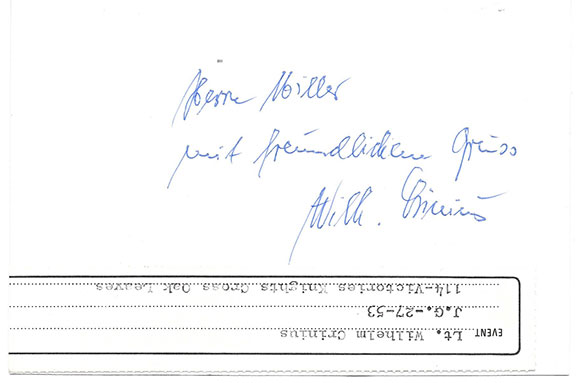 Herrn Miller
mit freundlichem Gruss
Wilh. Crinius
EVENT Lt. Wilhelm Crinius
J.G.-27-53
114-Victories Knights Cross Oak Leaves